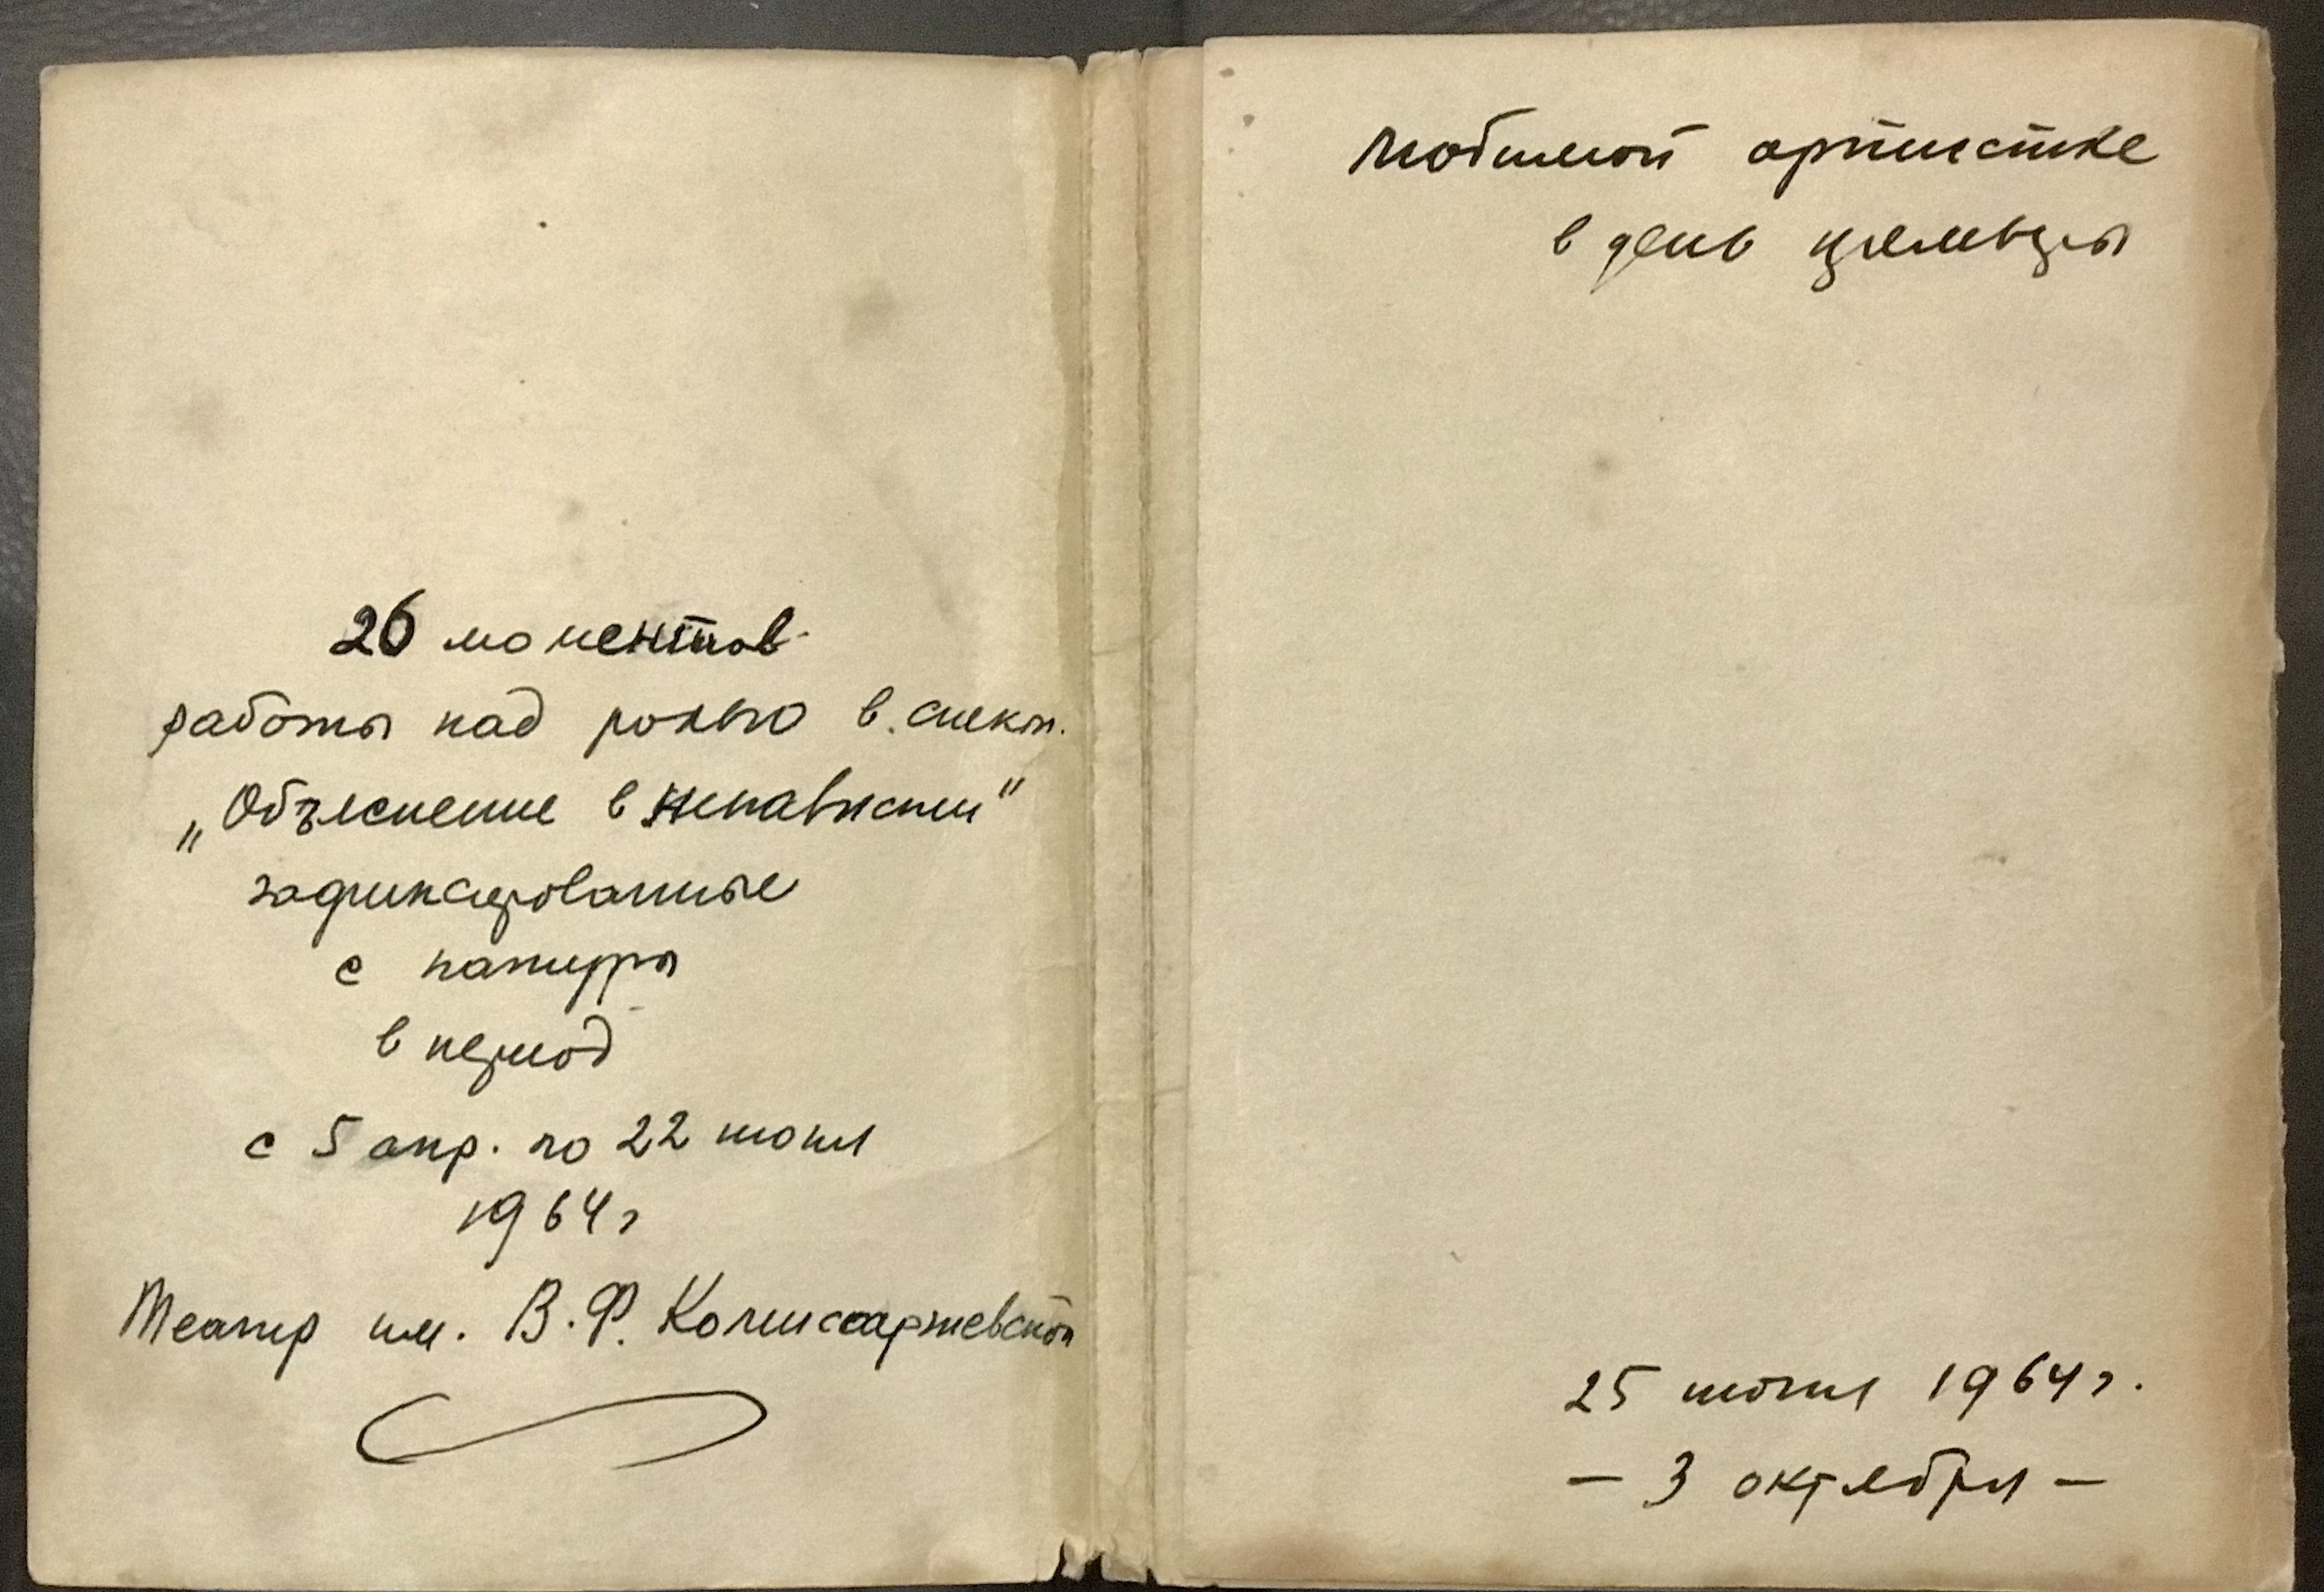 26 моментов
работы над ролью в.спект.
„Объяснение в ненависти"
зафиксированные
с натуры
в период
с 5 апр. по 22 июня
1964 г
Театр им. В.Ф. Комиссаржевской
Любимой артистке
в день премьеры
25 июня 1964 г.
— 3 октября —